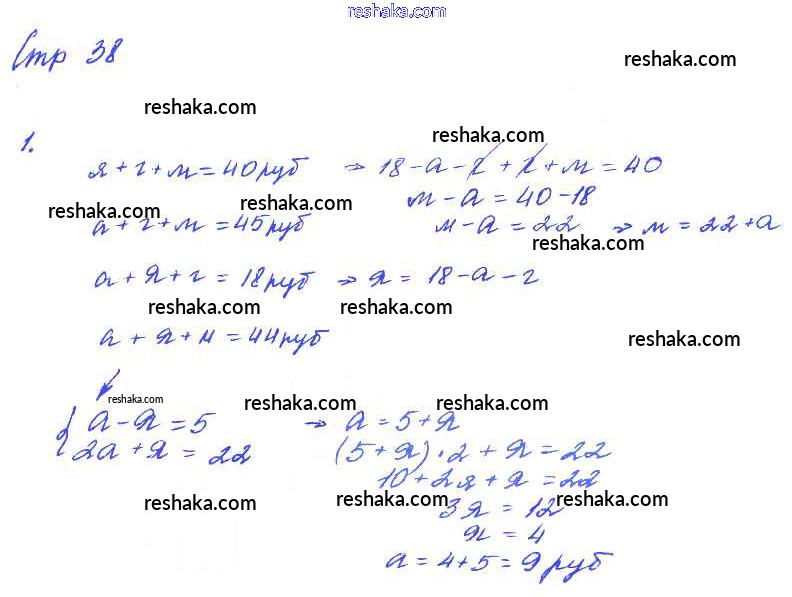 reshaka.com
Стр 38
reshaka.com
reshaka.com
1.
reshaka.com
я + г + м = 40 руб ⇒ 18 - а - г + г + м = 40
м - а = 40 - 18
reshaka.com reshaka.com
а + г + м = 45 руб м - а = 22 ⇒ м = 22 + а
reshaka.com
а + я + г = 18 руб ⇒ я = 18 - а - г
reshaka.com reshaka.com
а + я + м = 44 руб
reshaka.com
reshaka.com
reshaka.com reshaka.com
{ а - я = 5 → а = 5 + я
2а + я = 22 (5 + я) · 2 + я = 22
10 + 2я + я = 22
reshaka.com reshaka.com reshaka.com
3я = 12
я = 4
а = 4 + 5 = 9 руб